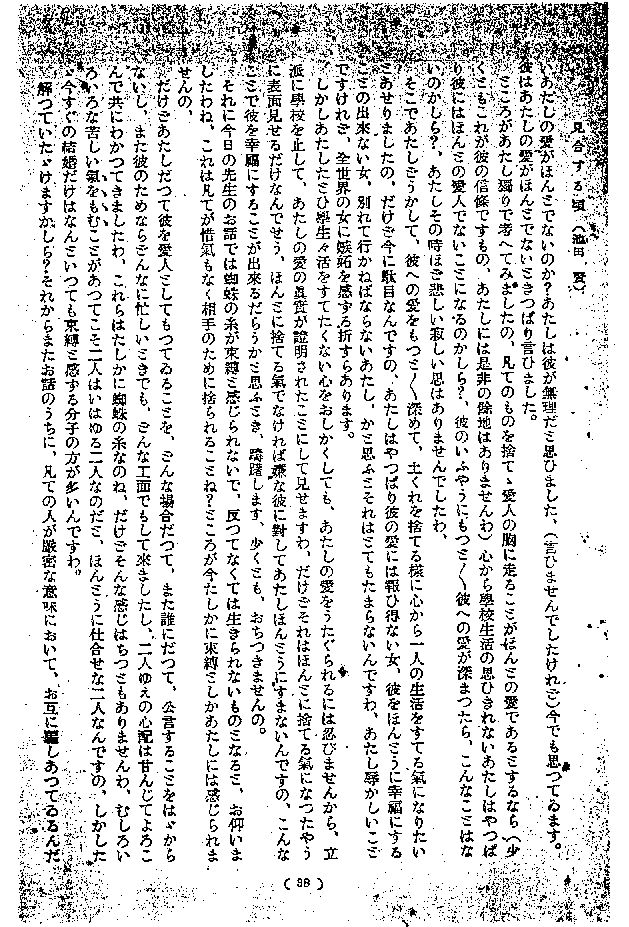 見合する頃 (池田 愛)
いあたしの愛がほんとでないのか?あたしは彼が無理だと思ひました、(言ひませんでしたけれど)今でも思つてゐます。
彼はあたしの愛がほんとでないときつぱり言ひました。
ところがあたし獨りで考へてみましたの、凡てのものを捨てゝ愛人の胸に走ることがほんとの愛であるとするなら(少
くともこれが彼の信條ですもの、あたしには是非の餘地はありませんわ)心から學校生活の思ひきれないあたしはやつぱ
り彼にはほんとの愛人でないことになるのかしら?、彼のいふやうにもつと〱彼への愛が深まつたら、こんなことはな
いのかしら?、あたしその時ほど悲しい寂しい思はありませんでしたわ。
そこであたしどうかして、彼への愛をもつと〱深めて、土くれを捨てる樣に心から一人の生活をすてる氣になりたい
とあせりましたの、だけど今に駄目なんですの、あたしはやつぱり彼の愛には報ひ得ない女、彼をほんとうに幸福にする
ことの出來ない女、別れて行かねばならないあたし、かと思ふとそれはとてもたまらないんですわ、あたし辱かしいこと
ですけれど、全世界の女に嫉妬を感ずる折すらあります。
しかしあたしたとひ學生々活をすてたくない心をおしかくしても、あたしの愛をうたぐられるには忍びませんから、立
派に學校を止して、あたしの愛の眞質が證明されたことにして見せますわ、だけどそれはほんとに捨てる氣になつたやう
に表面見せるだけなんでせう、ほんとに捨てる氣でなければ嫌な彼に對してあたしほんとうにすまないんですの、こんな
ことで彼を幸福にすることが出來るだらうかと思ふとき、躊躇します、少くとも、おちつきませんの。
それに今日の先生のお話では蜘蛛の糸が束縛と感じられないで、反つてなくては生きられないものとなると、お仰いま
したわね、これは凡てが惜氣もなく相手のために捨てられることね?ところが今たしかに束縛としかあたしには感じられま
せんの。
だけどあたしだつて彼を愛人としてもつてゐることを、どんな場合だつて、また誰にだつて、公言することをはゞから
ないし、また彼のためならどんなに忙しいときでも、どんな工面でもして來ましたし、二人ゆえの心配は甘んじてよろこ
んで共にわかつてきましたわ、これらはたしかに蜘蛛の糸なのね、だけどそんな感じはちつともありませんわ、むしろい
ろいろな苦しい氣をもむことがあつてこそ二人はいはゆる二人なのだと、ほんとうに仕合せな二人なんですの、しかした
ゞ今すぐの結婚だけはなんといつても束縛と感ずる分子の方が多いんですわ。
解つていたゞけますかしら?それからまたお話のうちに、凡ての人が嚴密な意味において、お互に騙しあつてゐるんだ
( 98 )